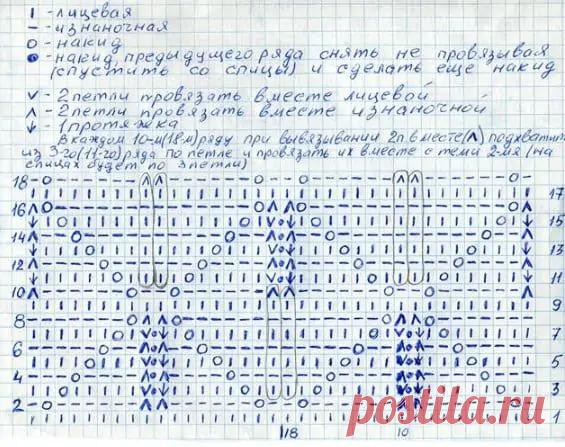 I - лицевая
— - изнаночная
O - накид
● - накид предыдущего ряда снять не провязывая
(спустить со спицы) и сделать еще накид
∨ - 2 петли провязать вместе лицевой
∧ - 2 петли провязать вместе изнаночной
↓ - 1 протяжка
В каждом 10-м (18м) ряду при вывязывании 2п вместе (∧) подхватить
из 3-го (11-го) ряда по петле и провязать их вместе с теми 2-мя (на
спицах будет по 3 петли)
18
17
16
15
14
13
12
11
10
9
8
7
6
5
4
3
2
1
18
10
postila.ru